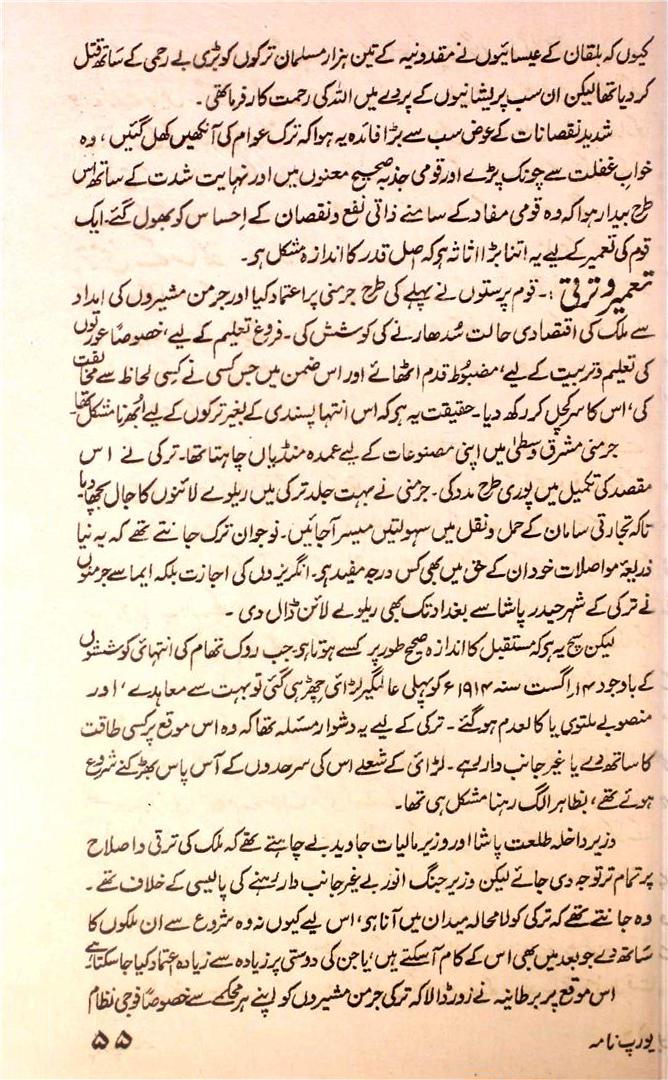 کیوں کہ بلقان کے عیسائیوں نے مقدونیہ کے تین ہزار مسلمان ترکوں کو بڑی بے رحمی کے ساتھ قتل
کر دیا تھا لیکن ان سب پریشانیوں کے پردے میں اللہ کی رحمت کار فرما تھی ۔
شدید نقصانات کے عوض سب سے بڑا فائدہ یہ ہوا کہ ترک عوام کی آنکھیں کھل گئیں ، وہ
خواب غفلت سے چونک پڑے اور قومی جذبہ صحیح معنوں میں اور نہایت شدت کے ساتھ اس
طرح بیدار ہوا کہ وہ قومی مفاد کے سامنے ذاتی نفع و نقصان کے احساس کو بھول گئے۔ ایک
قوم کی تعمیر کے لیے یہ اتنا بڑا اثاثہ ہو کہ اصل قدر کا اندازہ مشکل ہو۔
تعمیر و ترقی :۔ قوم پرستوں نے پہلے کی طرح جرمنی پر اعتماد کیا اور جرمن مشیروں کی امداد
سے ملک کی اقتصادی حالت سُدھارنے کی کوشش کی۔ فروغِ تعلیم کے لیے، خصوصاً عورتوں
کی تعلیم و تربیت کے لیے، مضبُوط قدم اٹھائے اور اس ضمن میں جس کسی نے کسِی لحاظ سے مخالفت
کی، اس کا سر کچل کر رکھ دیا۔ حقیقت یہ ہو کہ اس انتہا پسندی کے بغیر ترکوں کے لیے اُبھرنا مشکل تھا۔
جرمنی مشرق وسطیٰ میں اپنی مصنوعات کے لیے عمدہ منڈیاں چاہتا تھا۔ ترکی نے اس
مقصد کی تکمیل میں پوری طرح مدد کی۔ جرمنی نے بہت جلد ترکی میں ریلوے لائنوں کا جال بچھا دیا۔
تاکہ تجارتی سامان کے حمل و نقل میں سہولتیں میسر آ جائیں۔ نوجوان ترک جانتے تھے کہ یہ نیا
ذریعۂ مواصلات خود ان کے حق میں بھی کس درجہ مفید ہو۔ انگریزوں کی اجازت بلکہ ایما سے جرمنوں
نے ترکی کے شہر حیدر پاشا سے بغداد تک بھی ریلوے لائن ڈال دی ۔
لیکن سچ یہ ہو کہ مستقبل کا اندازہ صحیح طور پر کسے ہوتا ہو۔ جب روک تھام کی انتہائی کوششوں
کے باوجود ۱۴ اگست سنہ ۱۹۱۴ء کو پہلی عالمگیر لڑائی چھڑ ہی گئی تو بہت سے معاہدے ، اور
منصوبے ملتوی یا کالعدم ہو گئے ۔ ترکی کے لیے یہ دشوار مسئلہ تھا کہ وہ اس موقع پر کسی طاقت
کا ساتھ دے یا غیر جانب دار رہے ۔ لڑائی کے شعلے اس کی سرحدوں کے آس پاس بھڑکنے شروع
ہوئے تھے، بظاہر الگ رہنا مشکل ہی تھا۔
وزیر داخلہ طلعت پاشا اور وزیر مالیات جاوید بے چاہتے تھے کہ ملک کی ترقی و اصلاح
پر تمام تر توجہ دی جائے لیکن وزیر جنگ انور بے غیر جانب دار رہنے کی پالیسی کے خلاف تھے ۔
وہ جانتے تھے کہ ترکی کو لامحالہ میدان میں آنا ہو، اس لیے کیوں نہ وہ شروع سے ان ملکوں کا
ساتھ دے جو بعد میں بھی اس کے کام آ سکتے ہیں، یا جن کی دوستی پر زیادہ سے زیادہ اعتماد کیا جا سکتا ہے
اس موقع پر برطانیہ نے زور ڈالا کہ ترکی جرمن مشیروں کو اپنے ہر محکمے سے خصوصاً فوجی نظام
یورپ نامہ ۵۵